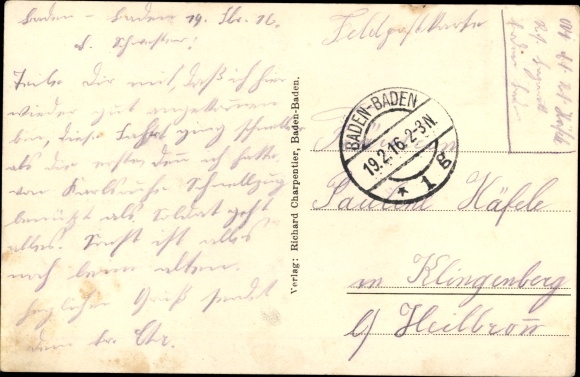 Baden-Baden 19. Fbr. 16.
l. Schwester!
Teile Dir mit, daß ich hier
wieder gut angekommen
bin, diese Fahrt ging schneller
als die erste, denn ich hatte
von Karlsruhe Schnellzug
benützt als Soldat geht
alles. Sonst ist alles
noch beim alten.
herzlichen Gruß sendet
Dein br.
Verlag: Richard Charpentier, Baden-Baden.
Feldpostkarte
BADEN-BADEN
19.2.16.2-3N.
* 1 g
Häfele
in Klingenberg
Heilbronn